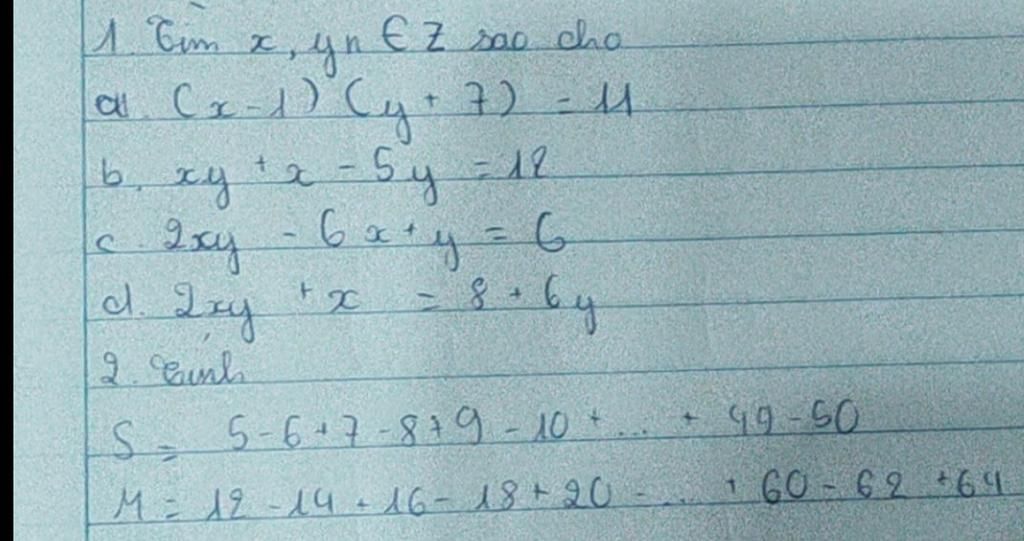 1. Tìm x, yn ∈ Z sao cho
a. (x - 1) (y + 7) = 11
b. xy + x - 5y = 12
c. 2xy - 6x + y = 6
d. 2xy + x = 8 + 6y
2. Tính
S = 5 - 6 + 7 - 8 + 9 - 10 + ... + 49 - 50
M = 12 - 14 + 16 - 18 + 20 - ... + 60 - 62 + 64